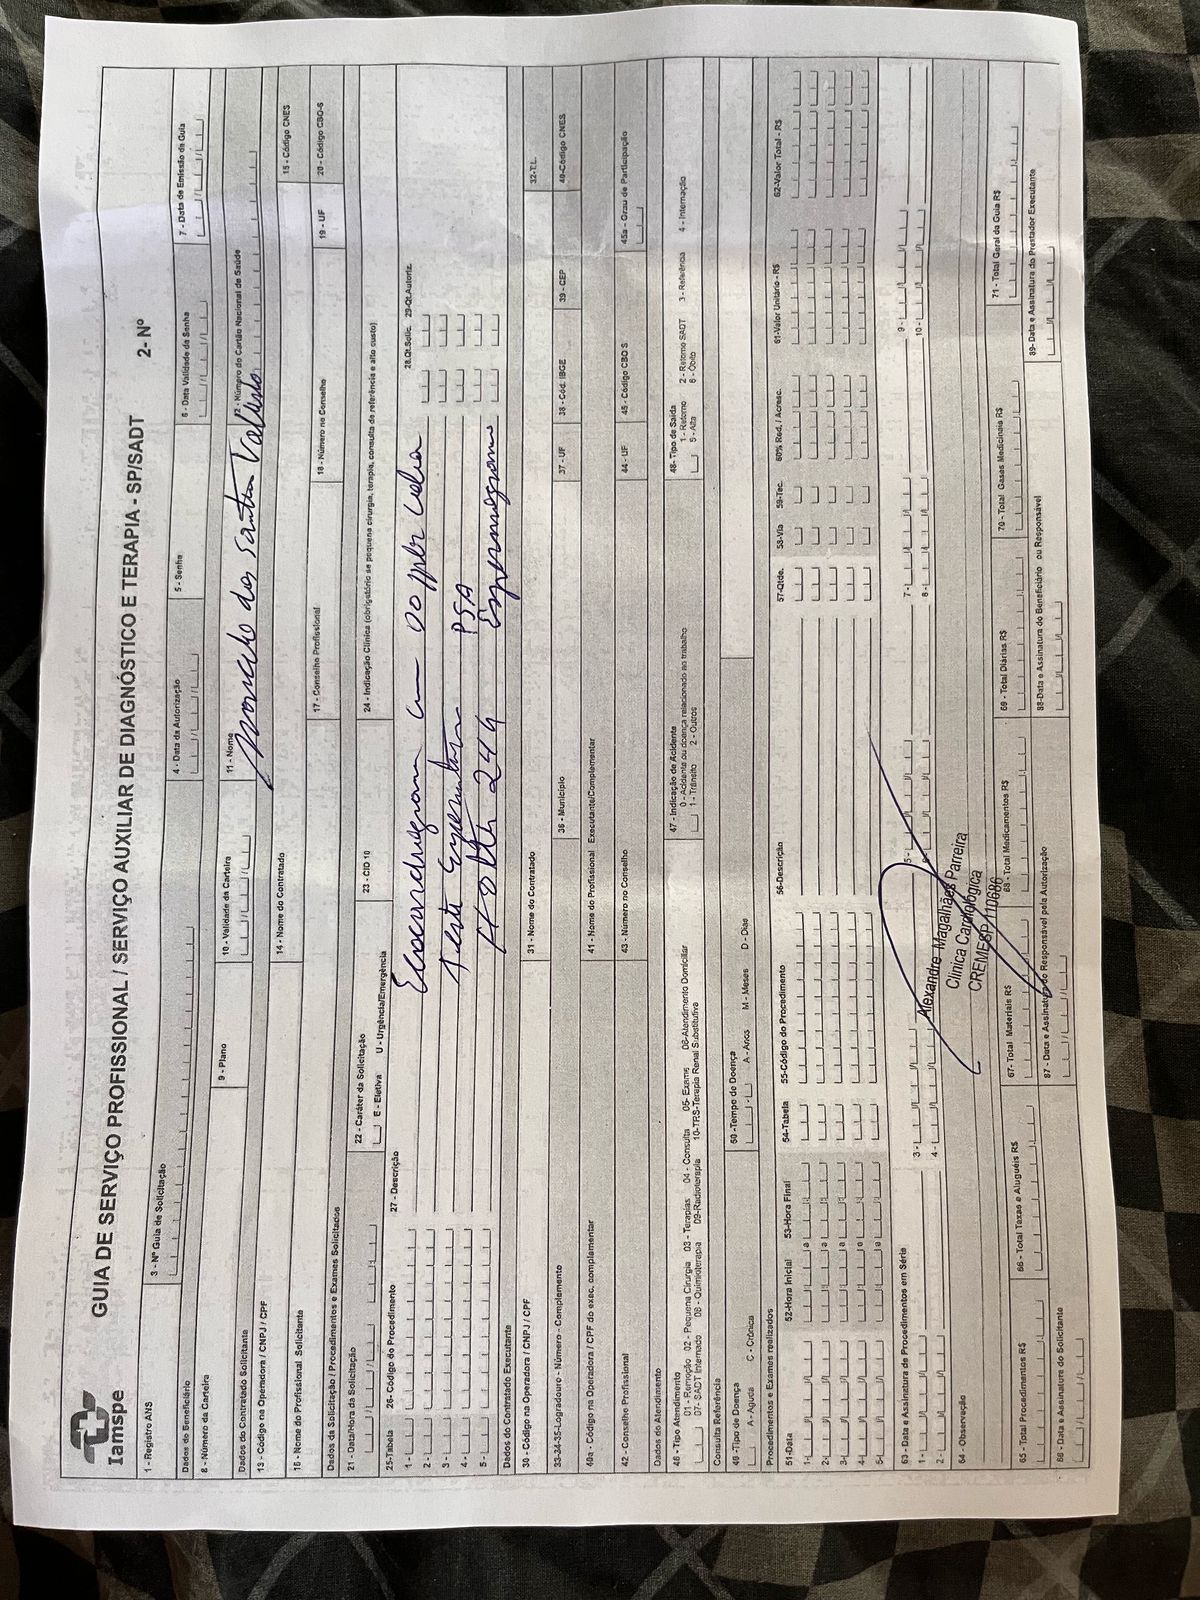 Iamspe
GUIA DE SERVIÇO PROFISSIONAL / SERVIÇO AUXILIAR DE DIAGNÓSTICO E TERAPIA - SP/SADT 2- Nº
1 - Registro ANS 3 - Nº Guia de Solicitação 4 - Data da Autorização 5 - Senha 6 - Data Validade da Senha 7 - Data de Emissão da Guia
Dados do Beneficiário
8 - Número da Carteira 9 - Plano 10 - Validade da Carteira 11 - Nome 12 - Número do Cartão Nacional de Saúde
dos Santos
Dados do Contratado Solicitante
13 - Código na Operadora / CNPJ / CPF 14 - Nome do Contratado 15 - Código CNES
16 - Nome do Profissional Solicitante 17 - Conselho Profissional 18 - Número no Conselho 19 - UF 20 - Código CBO-S
Dados da Solicitação / Procedimentos e Exames Solicitados
21 - Data/Hora da Solicitação 22 - Caráter da Solicitação 23 - CID 10 24 - Indicação Clínica (obrigatório se pequena cirurgia, terapia, consulta de referência e alto custo)
E - Eletiva U - Urgência/Emergência
25-Tabela 26- Código do Procedimento 27 - Descrição 28.Qt.Solic. 29-Qt.Autoriz.
1 -
2 -
3 - PSA
4 - Holter 24 h Espermograma
5 -
Dados do Contratado Executante
30 - Código na Operadora / CNPJ / CPF 31 - Nome do Contratado 32-T.L.
33-34-35-Logradouro - Número - Complemento 36 - Município 37 - UF 38 - Cód. IBGE 39 - CEP 40-Código CNES
40a - Código na Operadora / CPF do exec. complementar 41 - Nome do Profissional Executante/Complementar
42 - Conselho Profissional 43 - Número no Conselho 44 - UF 45 - Código CBO S 45a - Grau de Participação
Dados do Atendimento
46 - Tipo Atendimento 47 - Indicação de Acidente 48- Tipo de Saída
01 - Remoção 02 - Pequena Cirurgia 03 - Terapias 04 - Consulta 05- Exame 06-Atendimento Domiciliar 0 - Acidente ou doença relacionado ao trabalho 1 - Retorno 2 - Retorno SADT 3 - Referência 4 - Internação
07- SADT Internado 08 - Quimioterapia 09-Radioterapia 10-TRS-Terapia Renal Substitutiva 1 - Trânsito 2 - Outros 5 - Alta 6 - Óbito
Consulta Referência
49 -Tipo de Doença 50 -Tempo de Doença
A - Aguda C - Crônica A - Anos M - Meses D - Dias
Procedimentos e Exames realizados
51-Data 52-Hora Inicial 53-Hora Final 54-Tabela 55-Código do Procedimento 56-Descrição 57-Qtde. 58-Via 59-Tec. 60% Red. / Acresc. 61-Valor Unitário - R$ 62-Valor Total - R$
1- a
2- a
3- a
4- a
5- a
63 - Data e Assinatura de Procedimentos em Série
1 - 3 - 5 - 7 - 9 -
2 - 4 - 8 - 10 -
64 - Observação
Alexandre Magalhães Parreira
Clínica Cardiológica
CREMESP 110686
65 - Total Procedimentos R$ 66 - Total Taxas e Aluguéis R$ 67- Total Materiais R$ 68 - Total Medicamentos R$ 69 - Total Diárias R$ 70 - Total Gases Medicinais R$ 71 - Total Geral da Guia R$
86 - Data e Assinatura do Solicitante 87 - Data e Assinatura do Responsável pela Autorização 88-Data e Assinatura do Beneficiário ou Responsável 89- Data e Assinatura do Prestador Executante